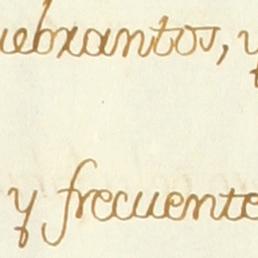 uebrantos, y
y frecuente